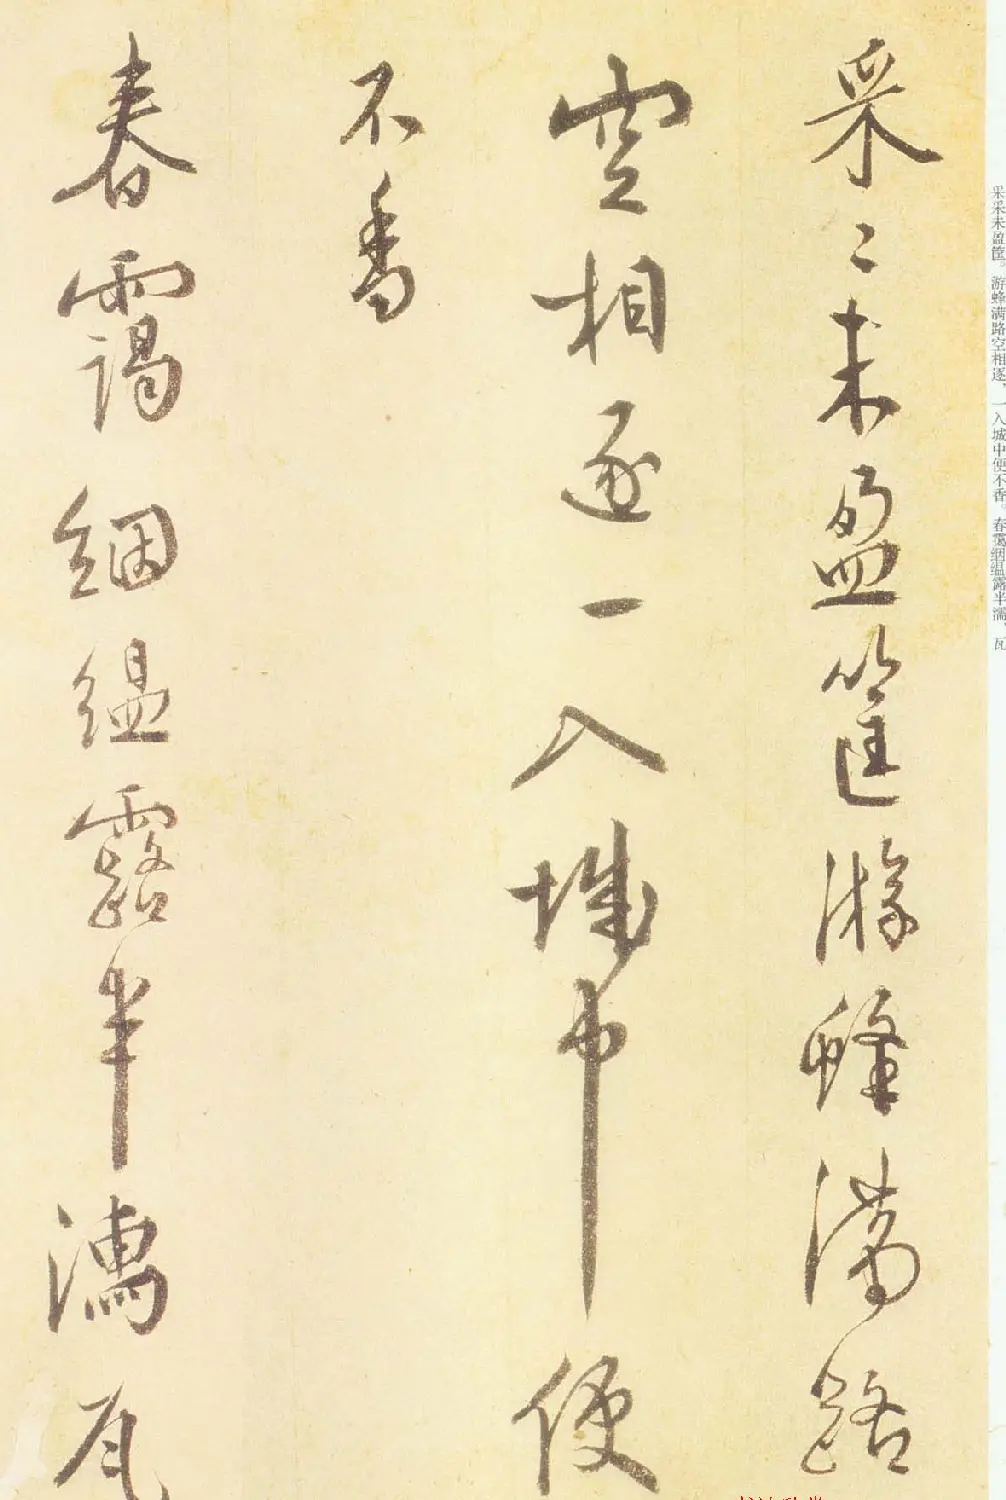 采〻未盈筐游蜂满路
空相逐一入城中便
不香
春靄絪緼露半濡瓦
采采未盈筐。游蜂满路空相逐、一入城中便不香。春霭絪缊露半濡、瓦